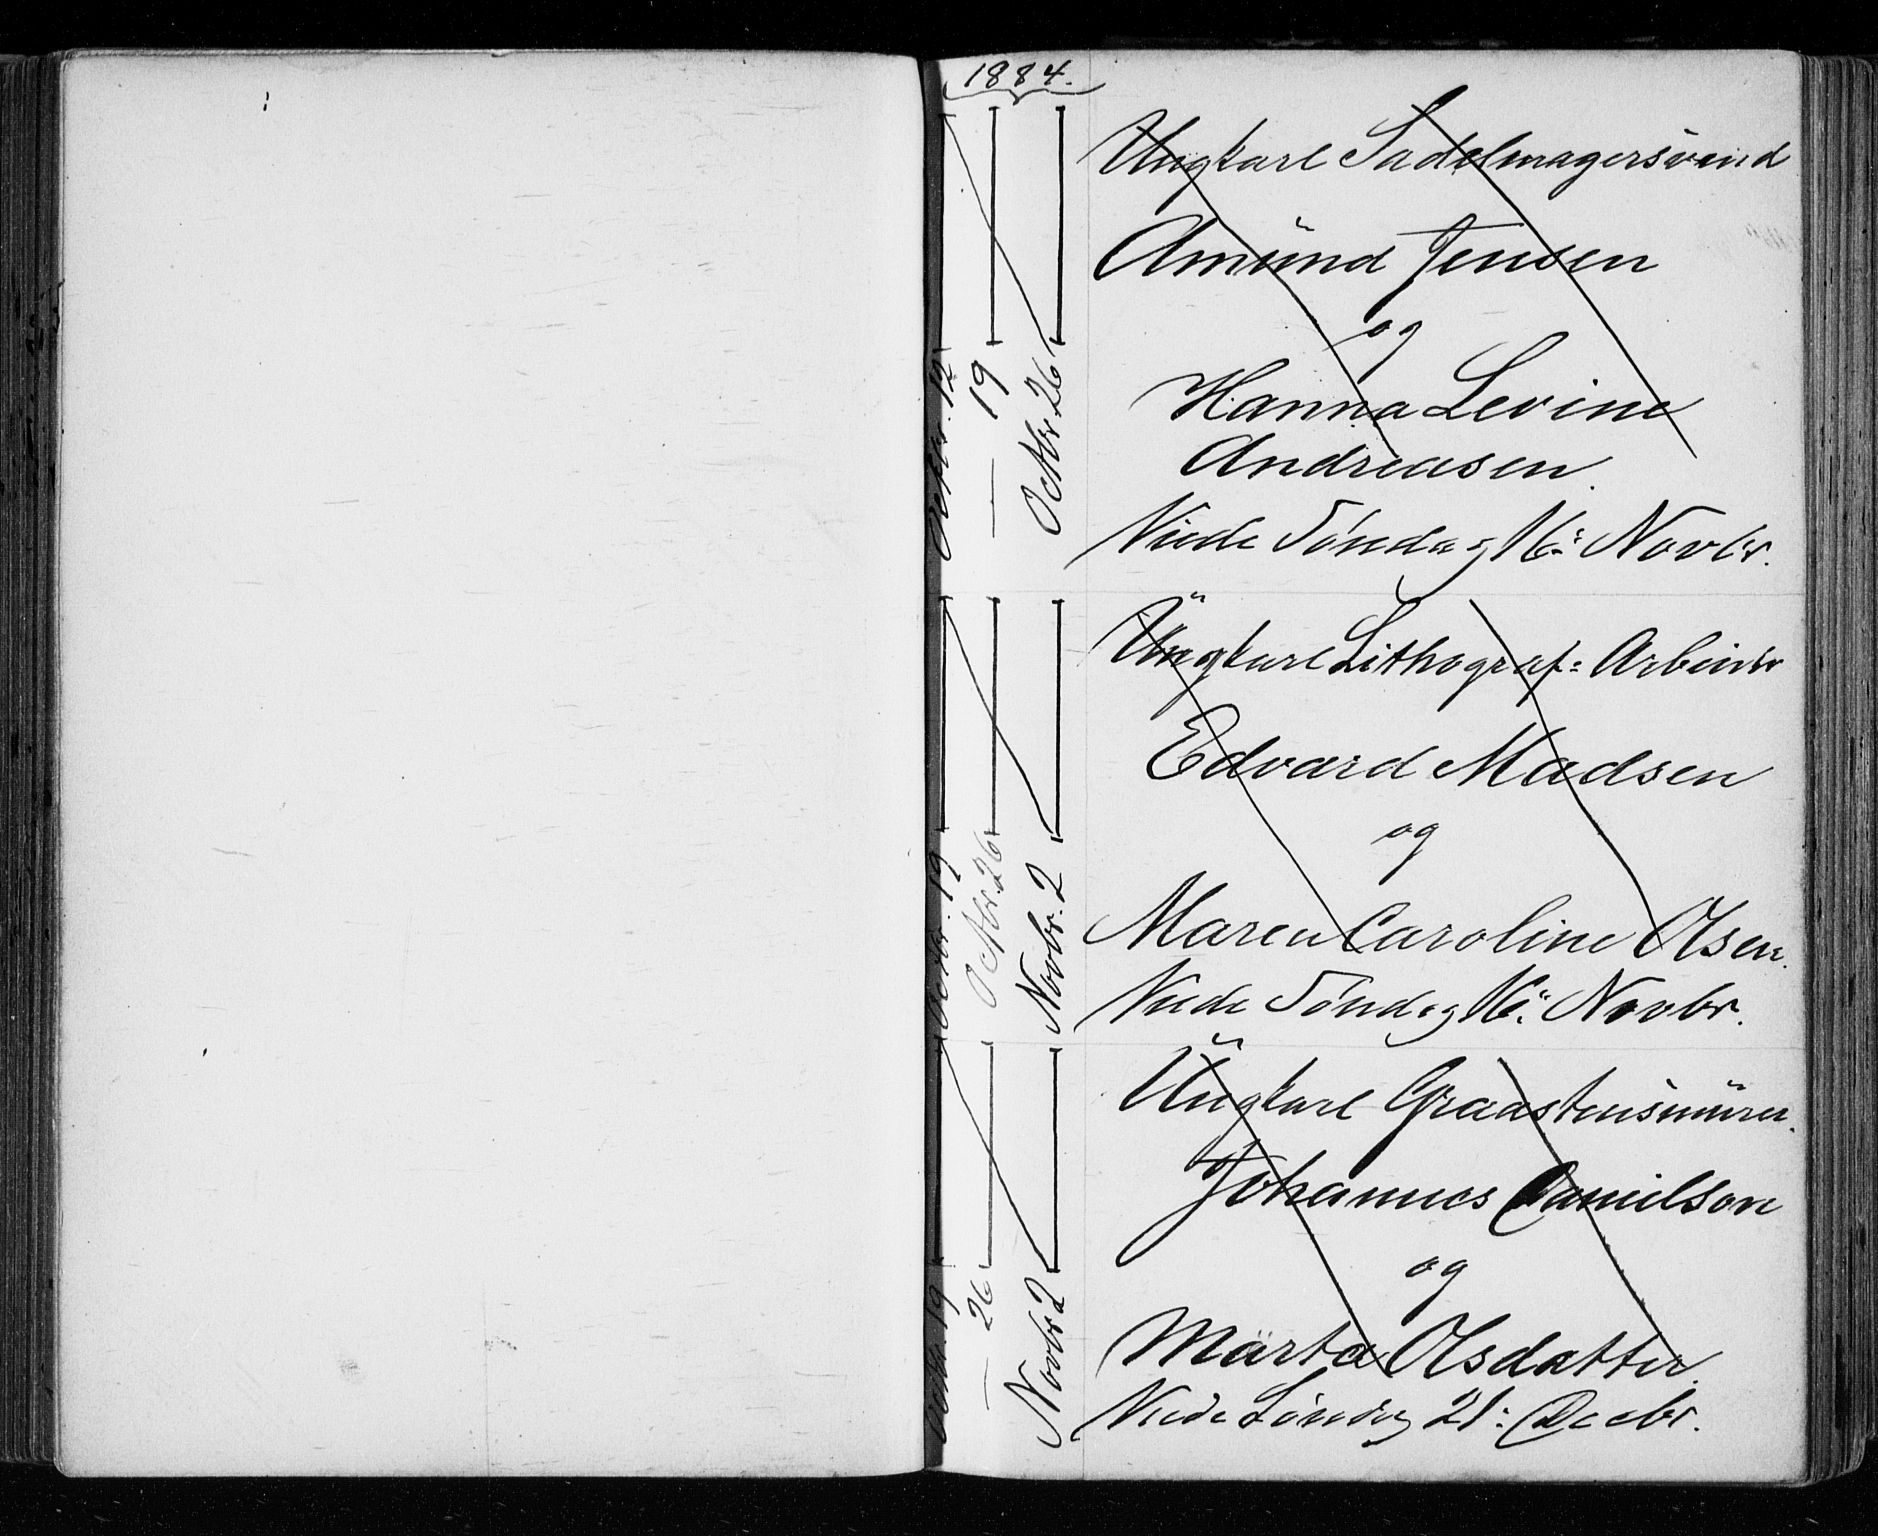 1884.
Octbr. 12
— 19
Octbr. 26
Ungkarl Sadelmagersvend
Amünd Jensen
og
Hanna Levine
Andreasen.
Viede Söndag 16: Novbr.
Octbr. 19
Octbr. 26
Novbr. 2
Üngkarl Lithograf= Arbeider
Edvard Madsen
og
Maren Caroline Olsen.
Viede Söndag 16: Novbr.
Octbr. 19
— 26
Novbr 2
Üngkarl Graastensmürer.
Johannes Danielson
og
Märta Olsdatter.
Viede Söndag 21: Decbr.